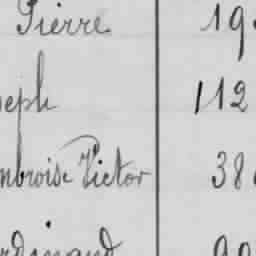 Pierre 19
seph 112
mbroise Victor 38
rdinand 99